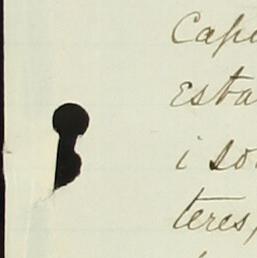 Cape
esta
i so
teres,